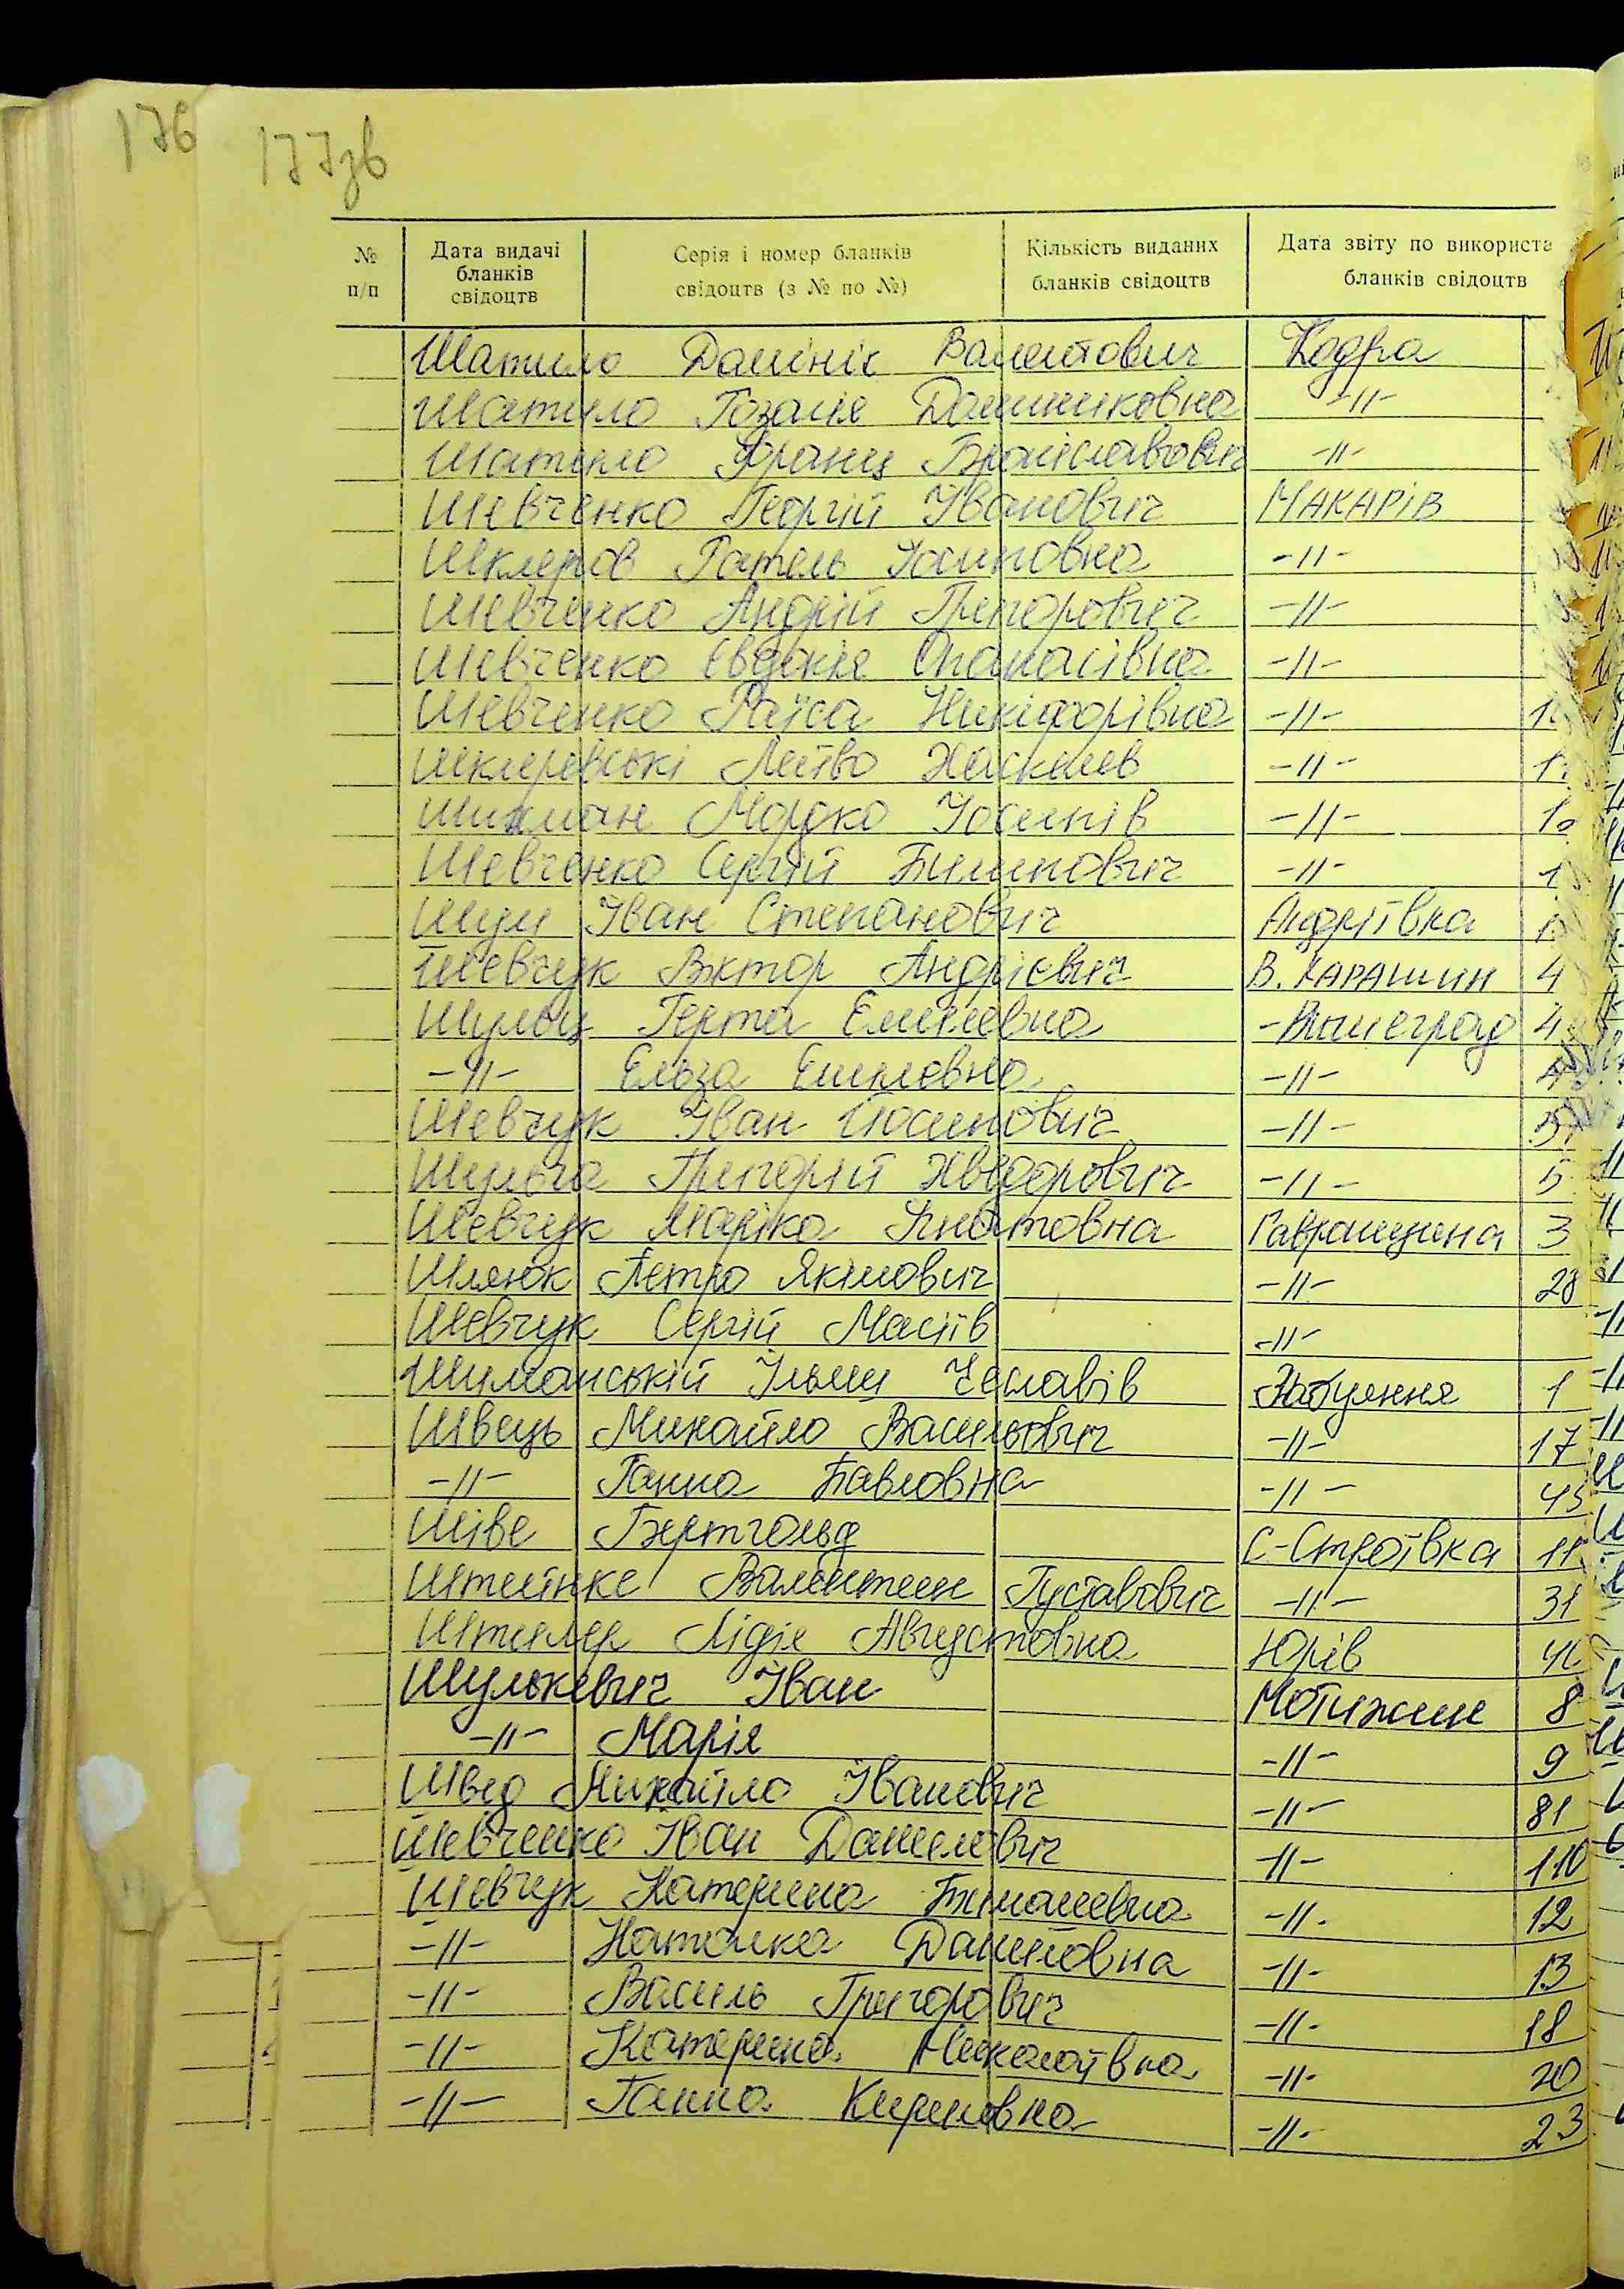 176
177зв
№ п/п Дата видачі бланків свідоцтв Серія і номер бланків свідоцтв (з № по №) Кількість виданих бланків свідоцтв Дата звіту по використа бланків свідоцтв
Шатило Домінік Валентович Кодра
Шатило Гозалія Доминиковна -//-
Шатило Франц Броніславович -//-
Шевченко Георгій Іванович МАКАРІВ
Шклеров Гатель Іосиповна -//-
Шевченко Андрій Григорович -//-
Шевченко Євдокія Опанасівна -//-
Шевченко Раїса Никіфорівна -//-
Шклеревські Лейво Хаскелев -//-
Шихман Мордко Іосипів -//-
Шевченко Сергій Пилипович -//-
Шум Іван Степанович Андріївка
Шевчук Віктор Андрієвич В. КАРАШИН 4
Шульц Герта Емілевна -Вишеград 4
-//- Ельза Емілевна -//-
Шевчук Іван Йосипович -//- 5
Шульга Григорій Хведорович -//- 5
Шевчук Маріка Ігнатовна Гавронщина 3
Шлянюк Петро Якімович -//- 28
Шевчук Сергій Масіїв -//-
Шиманській Ільяш Чеславів Забуяння 1
Швець Михайло Васильович -//- 17
-//- Ганна Павловна -//- 45
Шіве Бертгольд С-Строївка 11
Штейнке Валентин Густавович -//- 31
Штилер Лідія Августовна Юрів
Шулькевич Іван Мотижин 8
-//- Марія -//- 9
Швед Михайло Іванович -//- 81
Шевченко Іван Данилович -//- 110
Шевчук Катерина Тимошевна -//- 12
-//- Наталка Даниловна -//- 13
-//- Василь Григорович -//- 18
-//- Катерина Миколаївна -//- 20
-//- Ганна Кириловна -//- 23